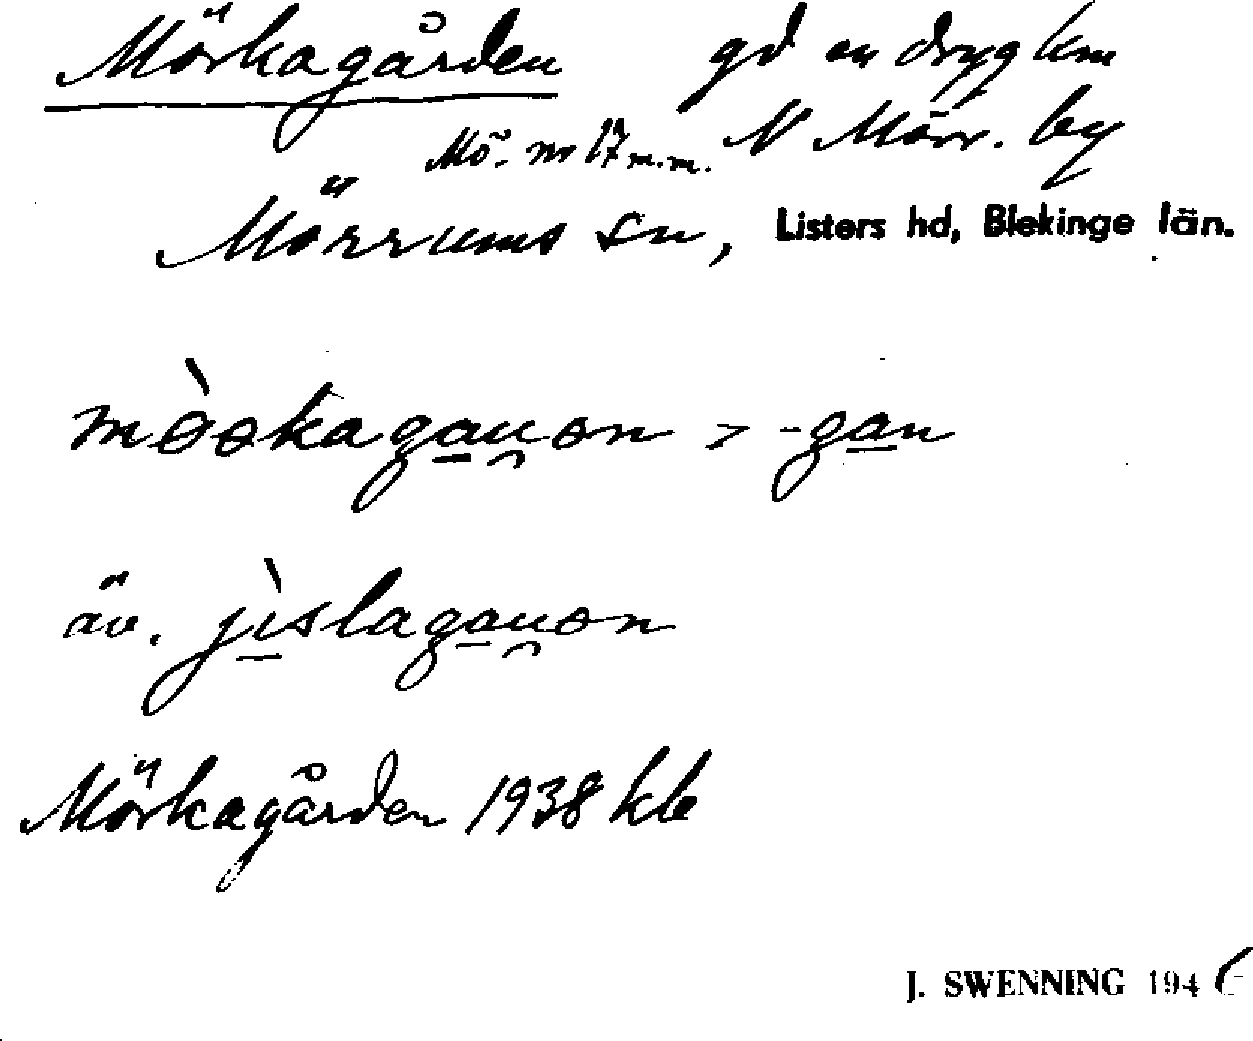 Mörkagården gd en dryg km
Mö. nr 17 m.m. N Mörr. by
Mörrums sn, Listers hd, Blekinge län.
mòɵkagau̯ən > -gan
äv. jìslagau̯ən
Mörkagården 1938 kb
J. SWENNING 1946